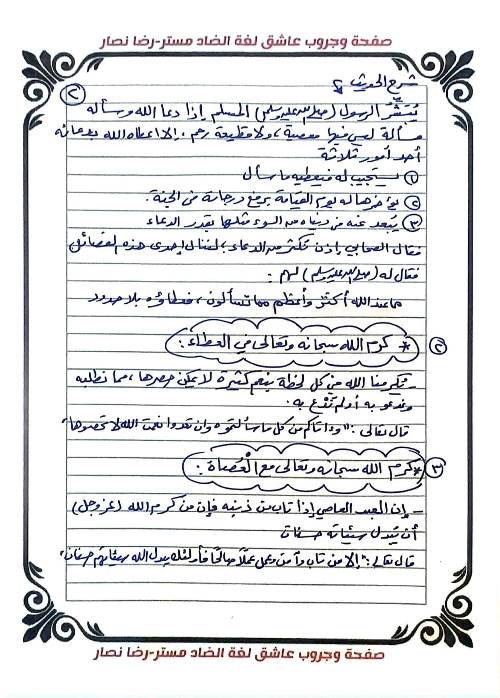 صفحة وجروب عاشق لغة الضاد مستر-رضا نصار
شرح الحديث :
٢
يُبَشِّر الرسول (صلى الله عليه وسلم) المسلم إذا دعا الله وسأله
مسألة ليس فيها معصية، ولا قطيعة رحم، إلا أعطاه الله بدعائه
أحد أمور ثلاثة
١ يستجيب له فيعطيه ما سأل
٢ يؤخرها له ليوم القيامة يرفع درجاته في الجنة.
٣ يُبعد عنه من دنياه من السوء مثلها بقدر الدعاء
فقال الصحابي إذن نكثر من الدعاء؛ لننال إحدى هذه الفضائل
فقال له (صلى الله عليه وسلم) لهم:
ما عند الله أكثر وأعظم مما تسألون، فعطاؤه بلا حدود
٢ * كرم الله سبحانه وتعالى في العطاء:
- يكرمنا الله من كل لحظة بنعم كثيرة لا يمكن حصرها، مما نطلبه
وندعو به أو لم نَدْع به.
قال تعالى: "وءاتاكم من كل ما سألتموه وإن تعدوا نعمت الله لا تحصوها"
٣ * كرم الله سبحانه وتعالى مع الْعُصَاة:
- إن العبد العاصي إذا تاب من ذنبه فإن من كرم الله (عز وجل)
أن يبدل سيئاته حسنات
قال تعالى: "إلا من تاب وآمن وعمل عملًا صالحًا فأولئك يبدل الله سيئاتهم حسنات"
صفحة وجروب عاشق لغة الضاد مستر-رضا نصار